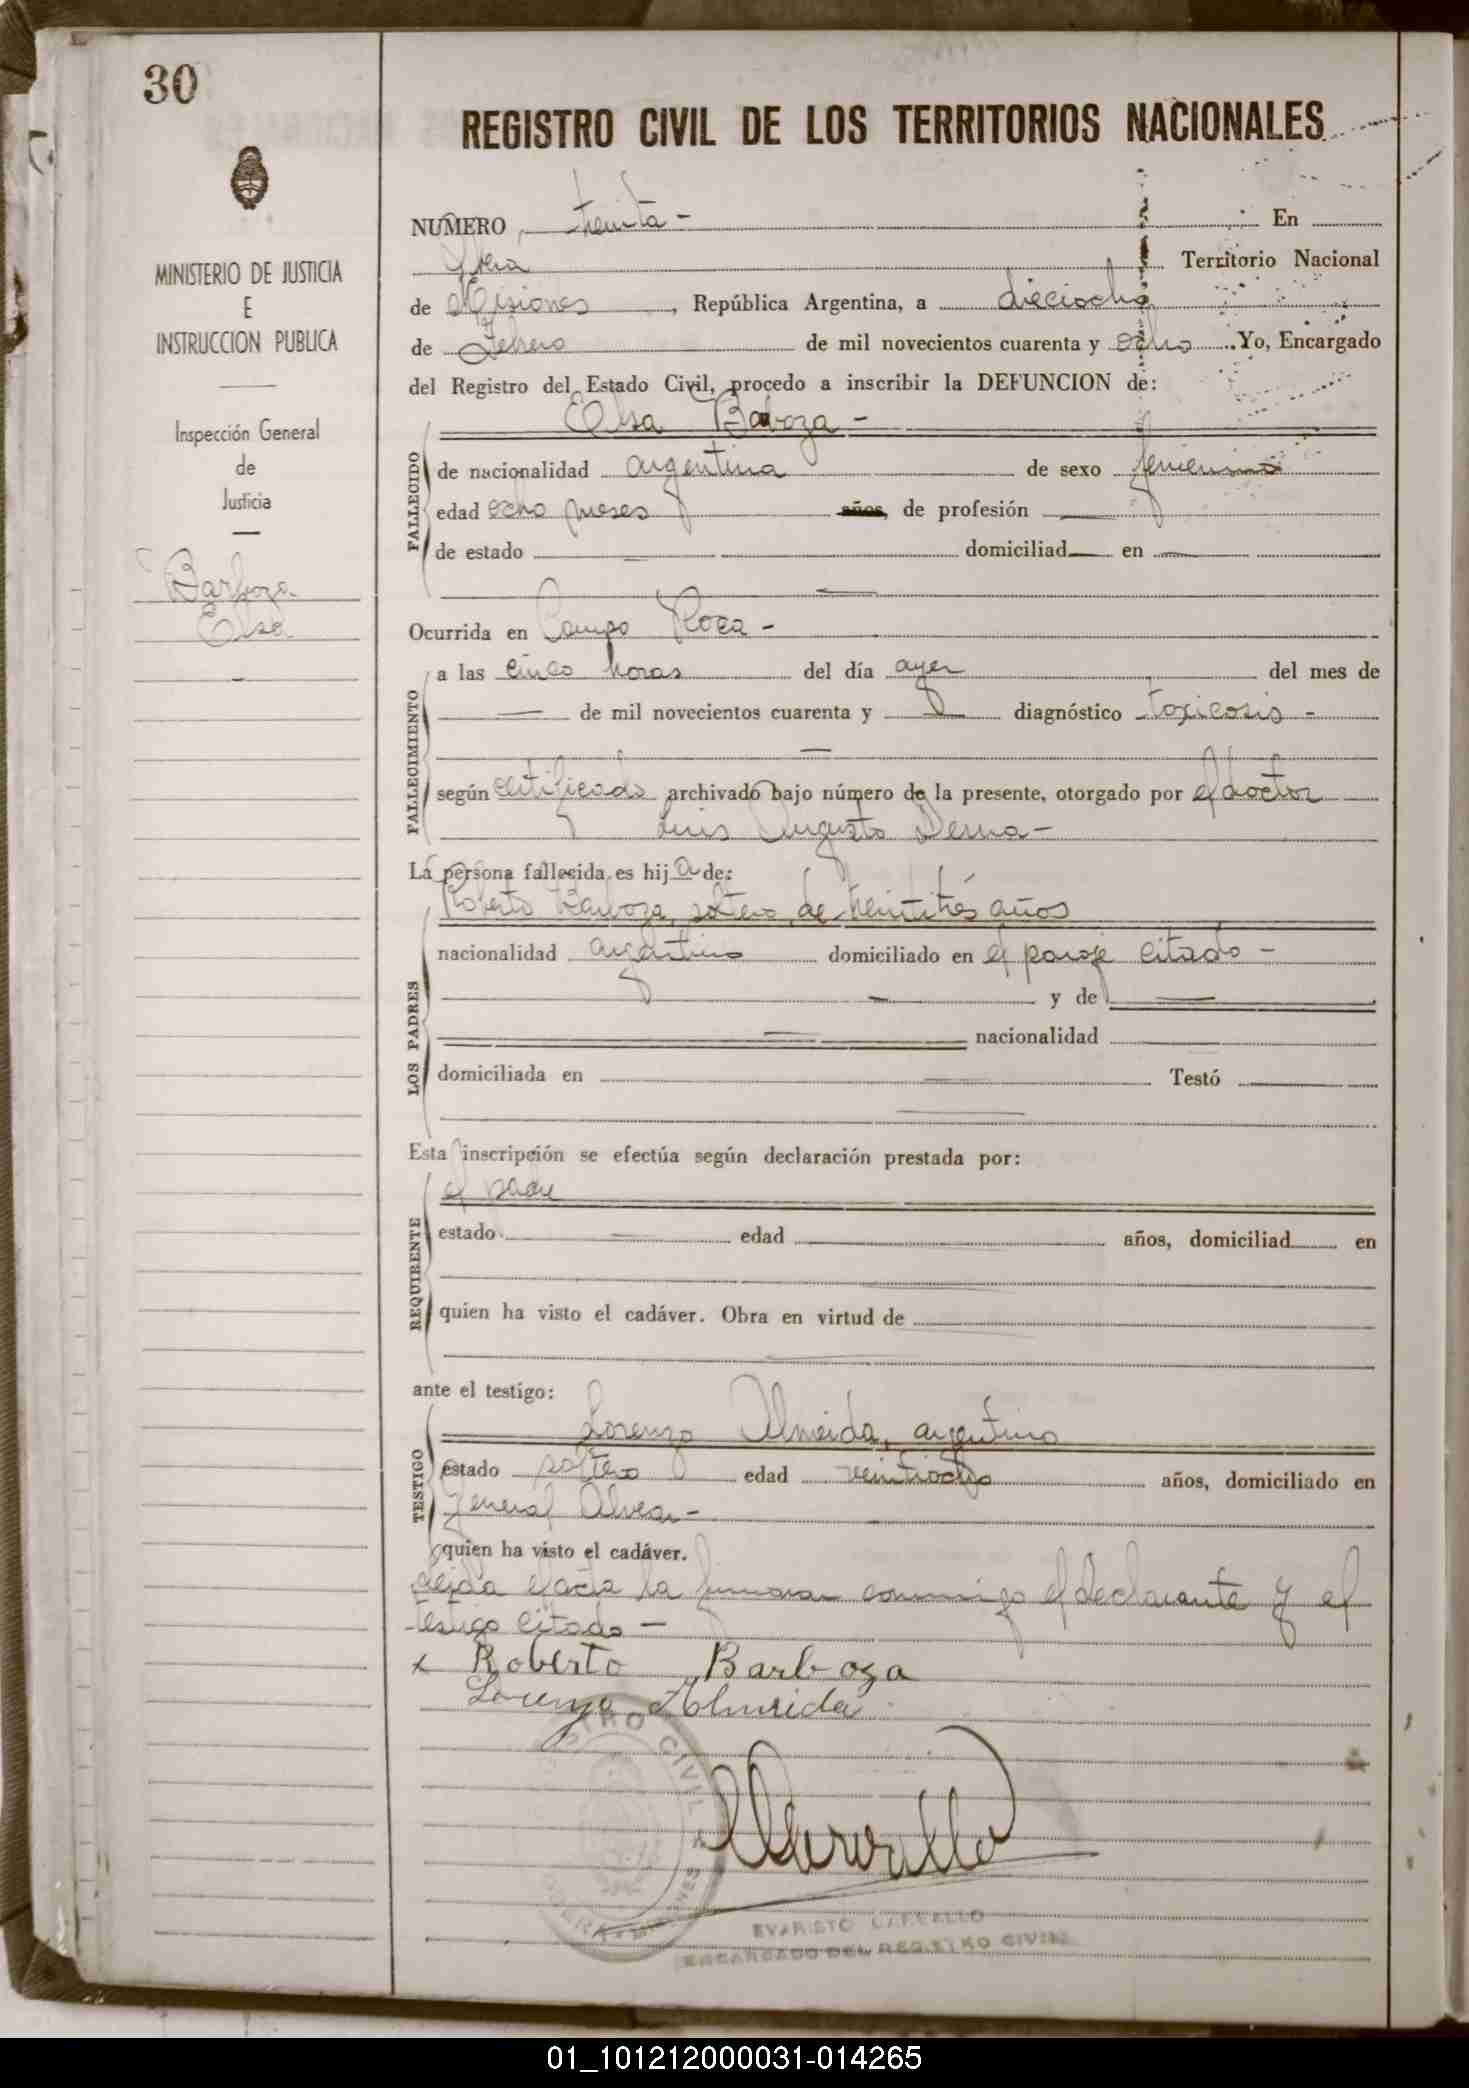 30
REGISTRO CIVIL DE LOS TERRITORIOS NACIONALES
MINISTERIO DE JUSTICIA
E
INSTRUCCION PUBLICA
Inspección General
de
Justicia
Barboza
Elsa
NUMERO treinta - En
Territorio Nacional
de Misiones, República Argentina, a dieciocho
de Febrero de mil novecientos cuarenta y ocho. Yo, Encargado
del Registro del Estado Civil, procedo a inscribir la DEFUNCION de:
Elsa Barboza -
FALLECIDO
de nacionalidad argentina de sexo femenino
edad ocho meses años, de profesión —
de estado — domiciliad— en —
—
Ocurrida en Campo Roca -
FALLECIMIENTO
a las cinco horas del día ayer del mes de
— de mil novecientos cuarenta y — diagnóstico toxicosis -
—
según certificado archivado bajo número de la presente, otorgado por el doctor
Luis Augusto Derna -
La persona fallecida es hija de:
LOS PADRES
Roberto Barboza, soltero, de treintitrés años
nacionalidad argentino domiciliado en el paraje citado -
— y de —
— nacionalidad —
domiciliada en — Testó —
—
Esta inscripción se efectúa según declaración prestada por:
REQUIRENTE
el padre
estado — edad — años, domiciliad en
—
quien ha visto el cadáver. Obra en virtud de —
—
ante el testigo:
TESTIGO
Lorenzo Almeida, argentino
estado soltero edad veintiocho años, domiciliado en
General Alvear -
quien ha visto el cadáver.
Leída el acta la firmaron conmigo el declarante y el
testigo citado -
x Roberto Barboza
Lorenzo Almeida
REGISTRO CIVIL
EVARISTO CARVALLO
ENCARGADO DEL REGISTRO CIVIL
01_101212000031-014265